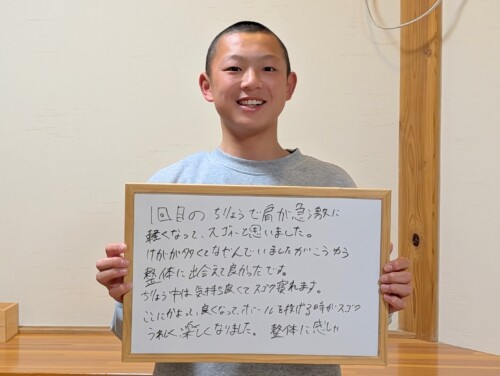 1回目のちりょうで肩が急激に
軽くなって、スゴイと思いました。
けがが多くてなやんでいましたがこうゆう
整体に出会えて良かったです。
ちりょう中は気持ち良くてスゴク寝れます。
ここにかよって、良くなって、ボールを投げる時がスゴク
うれしく楽しくなりました。 整体に感しゃ